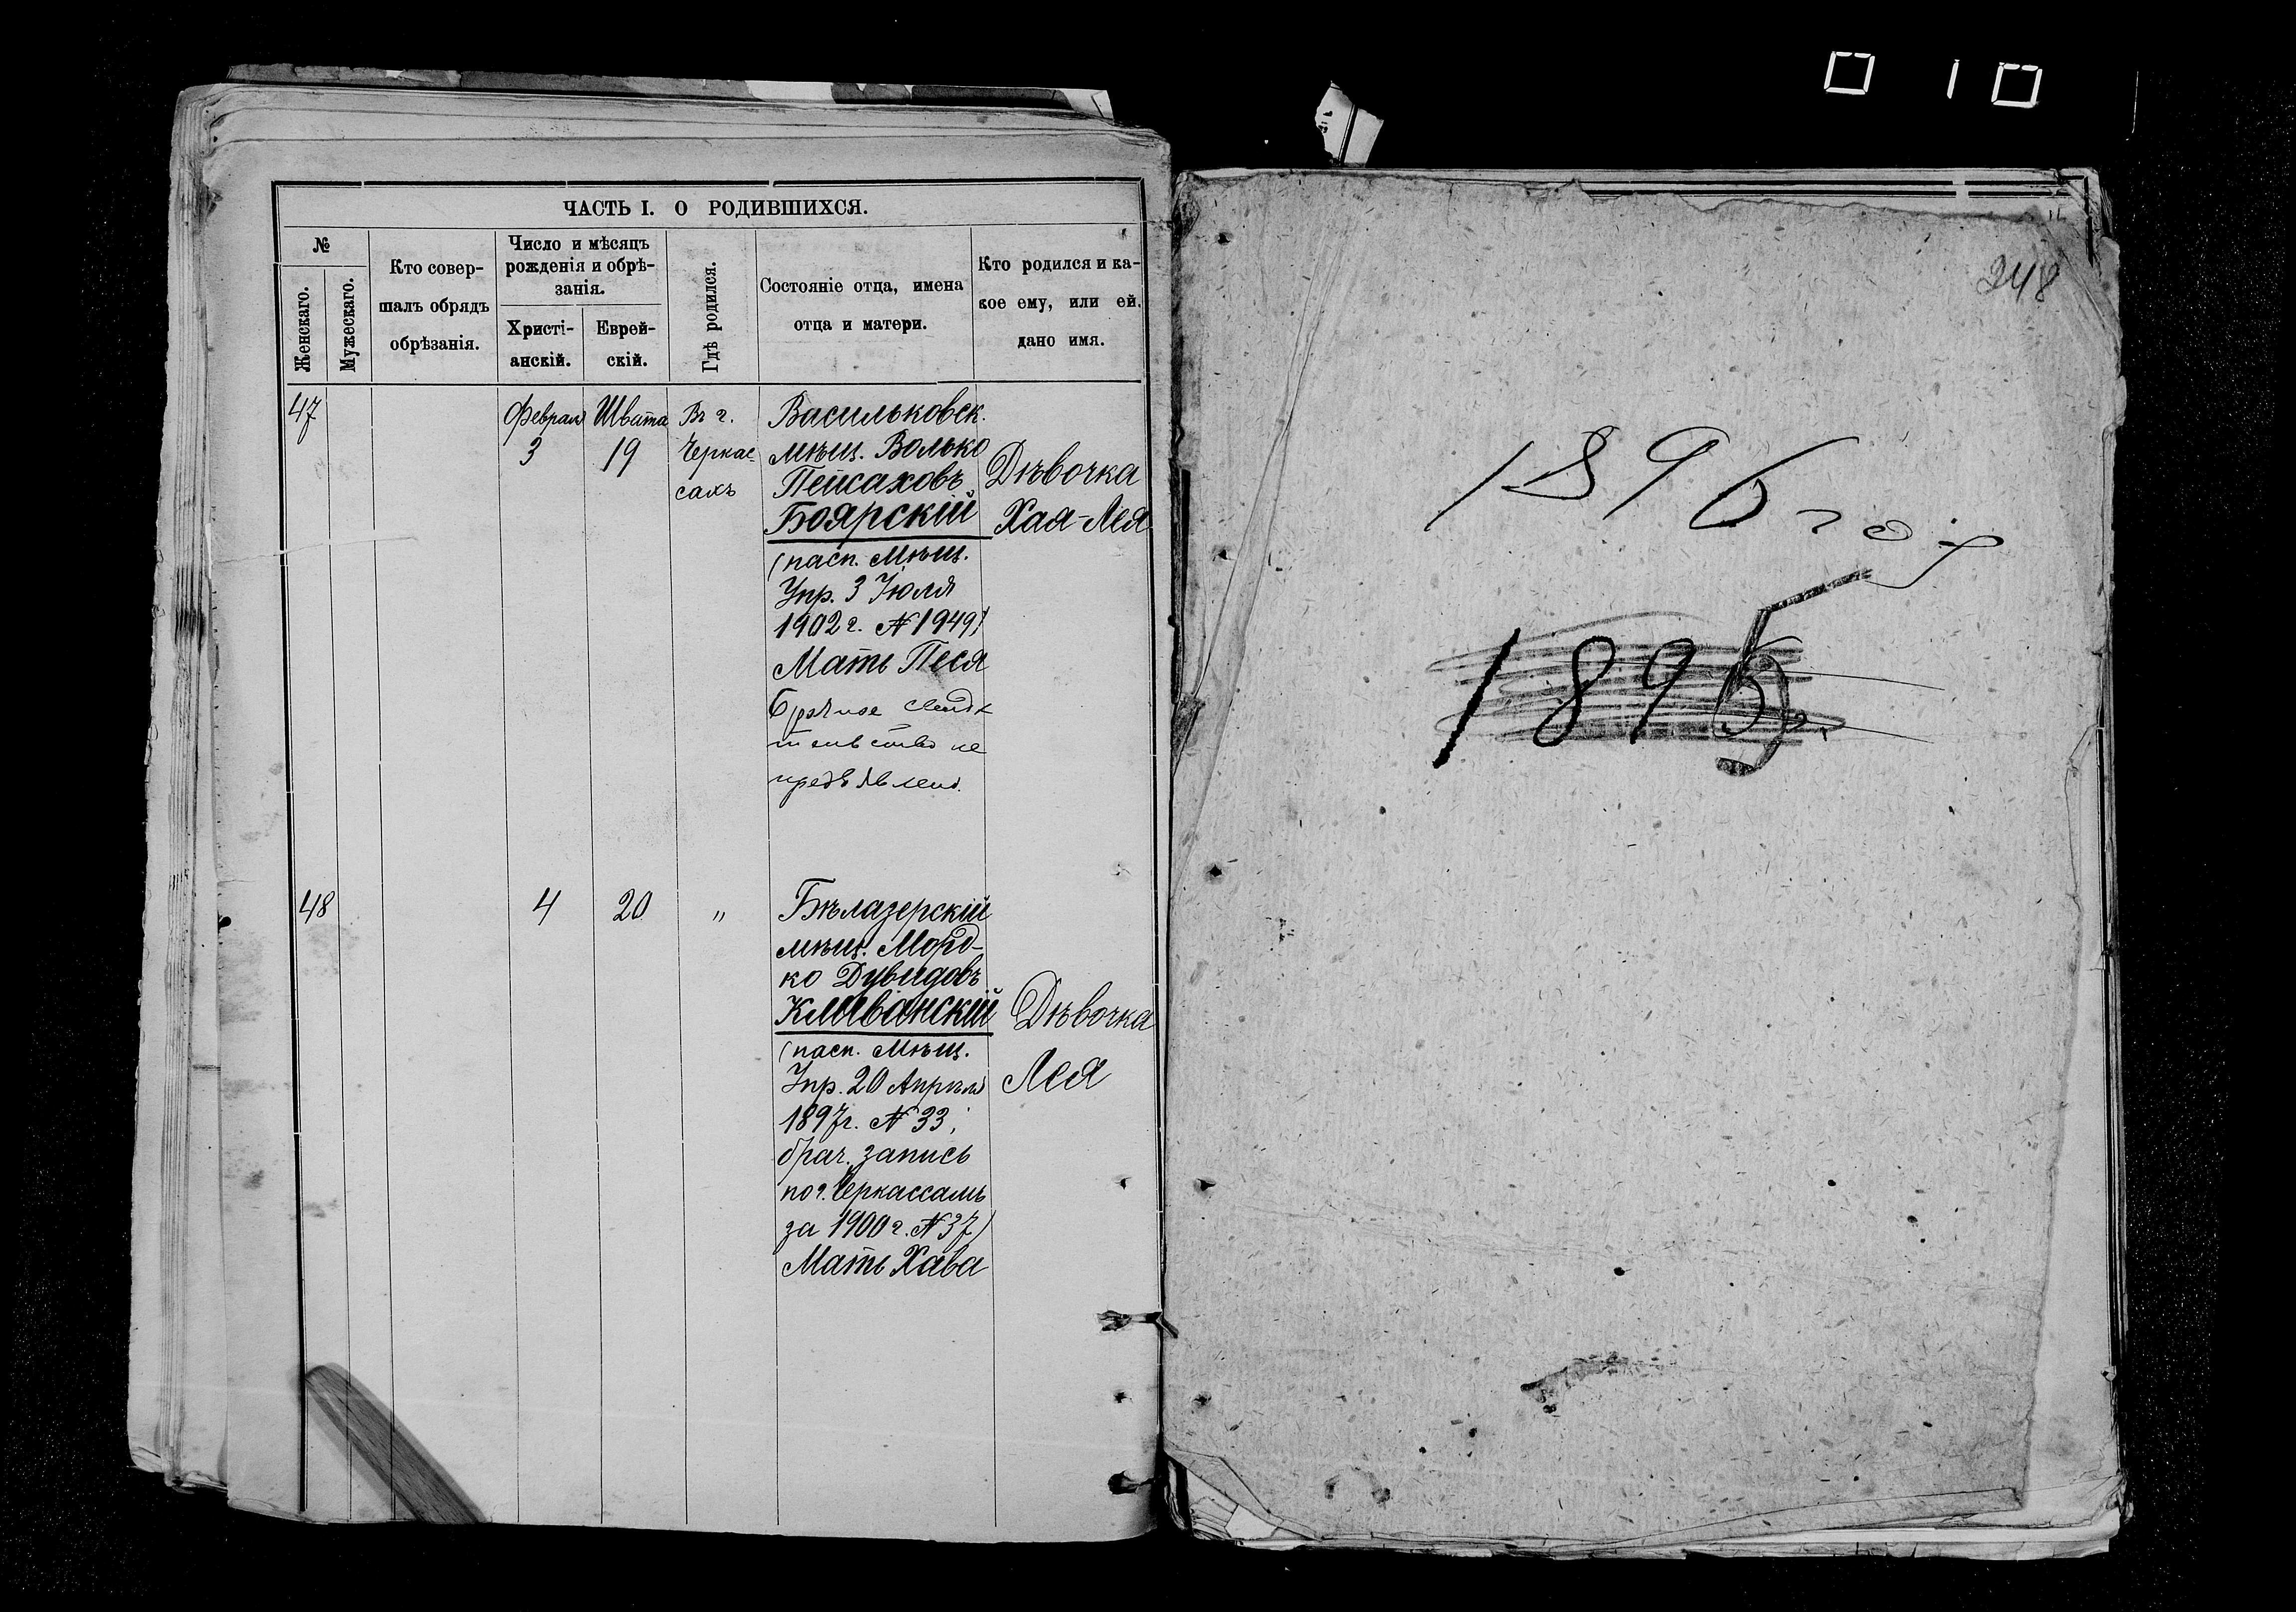 ЧАСТЬ I. О РОДИВШИХСЯ.
№
Женскаго.
Мужескаго.
Кто совер-
шалъ обрядъ
обрѣзанія.
Число и мѣсяцъ
рожденія и обрѣ-
занія.
Христі-
анскій.
Еврей-
скій.
Гдѣ родился.
Состояніе отца, имена
отца и матери.
Кто родился и ка-
кое ему, или ей,
дано имя.
47
Февраля
3
Швата
19
Въ г.
Черкас-
сахъ
Васильковск.
мѣщ. Волько
Пейсаховъ
Боярскій
(пасп. Мѣщ.
Упр. 3 Іюля
1902 г. № 1949)
Мать Песя
Брачное свидѣ
тельство не
предъявлено.
Дѣвочка
Хая-Лея
48
4
20
"
Бѣлазерскій
мѣщ. Морд-
ко Дувидовъ
Клеванскій
(пасп. Мѣщ.
Упр. 20 Апрѣля
1897 г. № 33;
брач. запись
по г. Черкассамъ
за 1900 г. № 37)
Мать Хава
Дѣвочка
Лея
010
248
1896 год